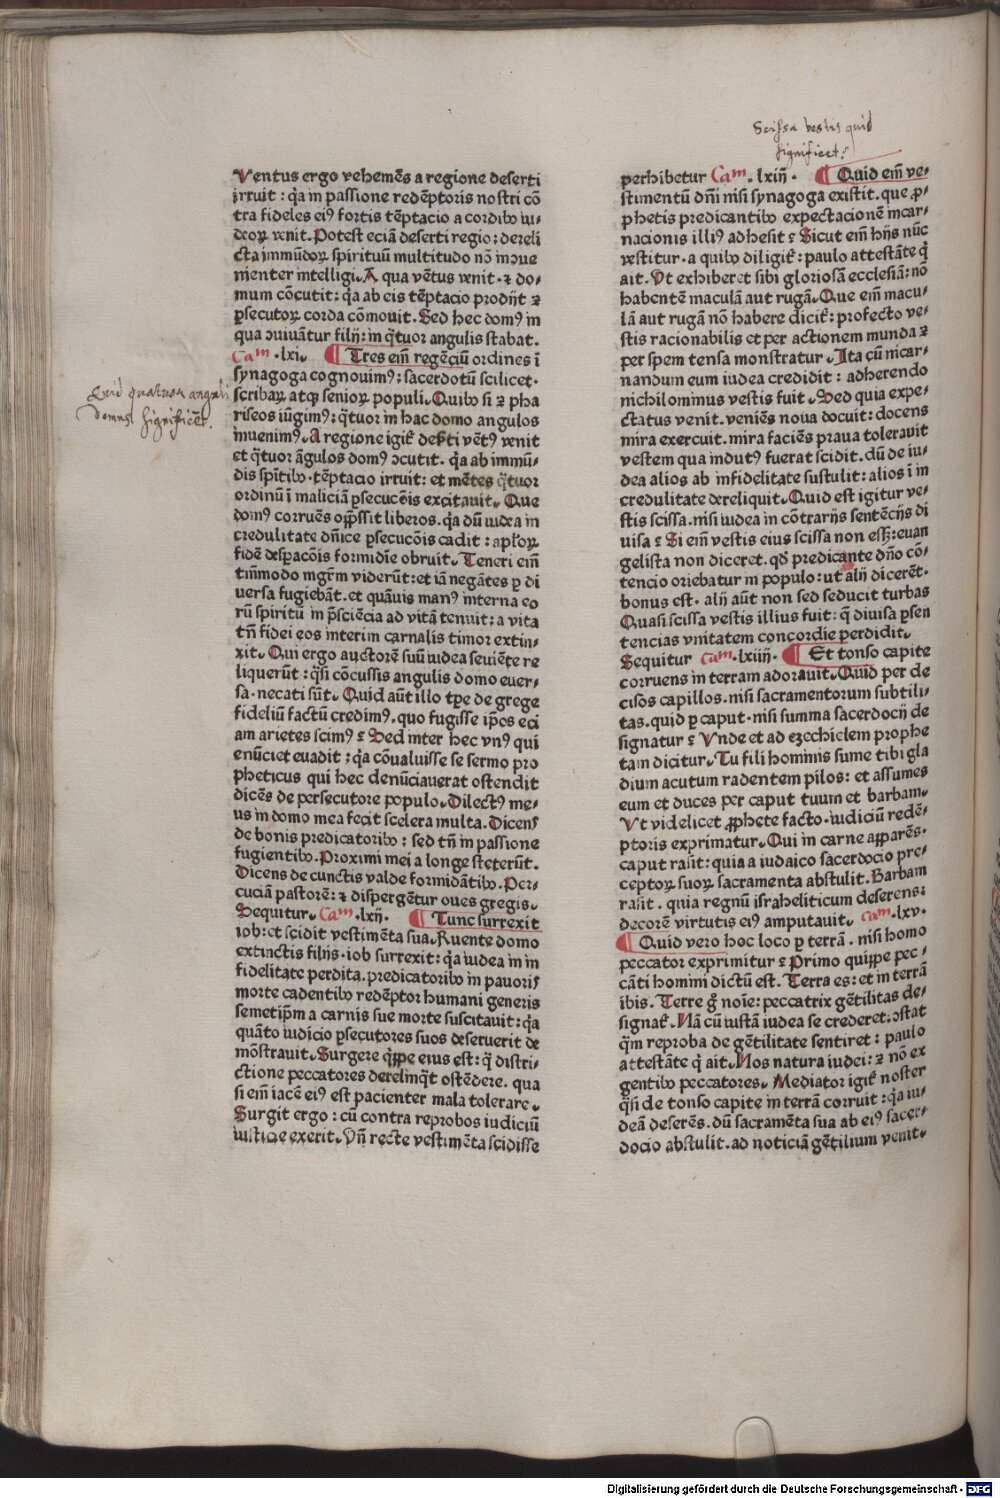 Scissa vestis quid
significet?
Ventus ergo vehemēs a regione deserti
irruit : q̄a in passione redēptoris nostri cō
tra fideles eiꝰ fortis tēptacio a cordibꝫ iu-
deoꝝ venit. Potest eciā deserti regio: dereli
cta immūdoꝝ spirituū multitudo nō incōue
nienter intelligi. A qua vētus venit . ⁊ do-
mum cōcutit: q̄a ab eis tēptacio prodijt ⁊
ꝑsecutoꝝ corda cōmouit. Sed hec domꝰ in
qua ↄuiuātur filij: in q̄tuor angulis stabat.
Cam .lxi. Tres em̄ regēciū ordines ī
synagoga cognouimꝰ: sacerdotū scilicet.
scribaꝝ atqꝫ senioꝝ populi. Quibꝫ si ⁊ pha
riseos iūgimꝰ: q̄tuor in hac domo angulos
Quid quatuor anguli
domus significēt.
inuenimꝰ. A regione igit̄ deẜti vētꝰ venit
et q̄tuor āgulos domꝰ ↄcutit. q̄a ab immū-
dis sp̄itibꝫ. tēptacio irruit: et mētes q̄tuor
ordinū ī maliciā ꝑsecucōis excitauit. Que
domꝰ corruēs opp̄ssit liberos. q̄a dū iudea in
credulitate dn̄ice ꝑsecucōis cadit : apl̄oꝝ
fidē desꝑacōis formidīe obruit. Teneri em̄
tm̄modo mgr̄m viderūt: et iā negātes ꝑ di
uersa fugiebāt. et quāuis manꝰ interna eo
rū spiritū in p̄sciēcia ad vitā tenuit: a vita
tn̄ fidei eos interim carnalis timor extin-
xit. Qui ergo auctorē suū iudea seuiēte re
liquerūt : q̄si cōcussis angulis domo euer-
sa. necati sūt. Quid aūt illo tꝑe de grege
fideliū factū credimꝰ. quo fugisse ip̄os eci
am arietes scimꝰ ? Sed inter hec vnꝰ qui
enūciet euadit : q̄a cōualuisse se sermo pro
pheticus qui hec denūciauerat ostendit
dicēs de persecutore populo. Dilectꝰ me-
us in domo mea fecit scelera multa. Dicens
de bonis predicatoribꝫ : sed tn̄ in passione
fugientibꝫ. Proximi mei a longe steterūt.
Dicens de cunctis valde formidātibꝫ. Per-
cuciā pastorē: ⁊ dispergētur oues gregis.
Sequitur. Cam .lxij. Tunc surrexit
iob: et scidit vestimēta sua. Ruente domo
extinctis filijs. iob surrexit: q̄a iudea in in
fidelitate perdita. predicatoribꝫ in pauoris
morte cadentibꝫ redēptor humani generis
semetip̄m a carnis sue morte suscitauit : q̄a
quāto iudicio ꝑsecutores suos deseruerit de
mōstrauit. Surgere q̄ꝑpe eius est: q̄ distri-
ctione peccatores derelinq̄t ostēdere. qua
si em̄ iacē eiꝰ est pacienter mala tolerare.
Surgit ergo : cū contra reprobos iudiciū
iusticie exerit. Vn̄ recte vestimēta scidisse
perhibetur Cam .lxiij. Quid em̄ ve-
stimentū dn̄i nisi synagoga existit. que ꝓ-
phetis predicantibꝫ expectacionē incar-
nacionis illiꝰ adhesit ? Sicut em̄ hijs nūc
vestitur . a quibꝫ diligit̄ : paulo attestāte q̄
ait. Vt exhiberet sibi gloriosā ecclesiā: nō
habentē maculā aut rugā. Que em̄ macu-
lā aut rugā nō habere dicit̄ : profecto ve-
stis racionabilis et per actionem munda ⁊
per spem tensa monstratur . Ita cū incar-
nandum eum iudea credidit : adherendo
nichilominus vestis fuit . Sed quia expe-
ctatus venit. veniēs noua docuit: docens
mira exercuit. mira faciēs praua tolerauit
vestem qua indutꝰ fuerat scidit. dū de iu-
dea alios ab infidelitate sustulit: alios ī in
credulitate dereliquit. Quid est igitur ve-
stis scissa. nisi iudea in cōtrarijs sentēcijs di
uisa ? Si em̄ vestis eius scissa non esset: euan
gelista non diceret. qđ predicante dn̄o cō-
tencio oriebatur in populo: ut alij dicerēt.
bonus est. alij aūt non sed seducit turbas
Quasi scissa vestis illius fuit: q̄ diuisa ꝑ sen
tencias vnitatem concordie perdidit.
Sequitur Cam .lxiiij. Et tonso capite
corruens in terram adorauit. Quid per de
cisos capillos. nisi sacramentorum subtili-
tas. quid ꝑ caput. nisi summa sacerdocij de
signatur ? Vnde et ad ezechielem prophe
tam dicitur. Tu fili hominis sume tibi gla
dium acutum radentem pilos: et assumes
eum et duces per caput tuum et barbam.
Vt videlicet ꝓphete facto. iudiciū redē-
ptoris exprimatur. Qui in carne apparēs.
caput rasit: quia a iudaico sacerdocio pre-
ceptoꝝ suoꝝ sacramenta abstulit. Barbam
rasit. quia regnū israheliticum deserens:
decorē virtutis eiꝰ amputauit. Cam .lxv.
Quid vero hoc loco ꝑ terrā. nisi homo
peccator exprimitur ? Primo quippe pec-
cāti homini dictū est. Terra es: et in terrā
ibis. Terre g̊ noīe: peccatrix gētilitas de-
signat̄. Nā cū iustā iudea se crederet: ↄstat
q̄m reproba de gētilitate sentiret : paulo
attestāte q̄ ait. Nos natura iudei: ⁊ nō ex
gentibꝫ peccatores. Mediator igit̄ noster
q̄si de tonso capite in terrā corruit : q̄a iu-
deā deserēs. dū sacramēta sua ab eiꝰ sacer-
docio abstulit. ad noticiā gētilium venit.
Digitalisierung gefördert durch die Deutsche Forschungsgemeinschaft - DFG